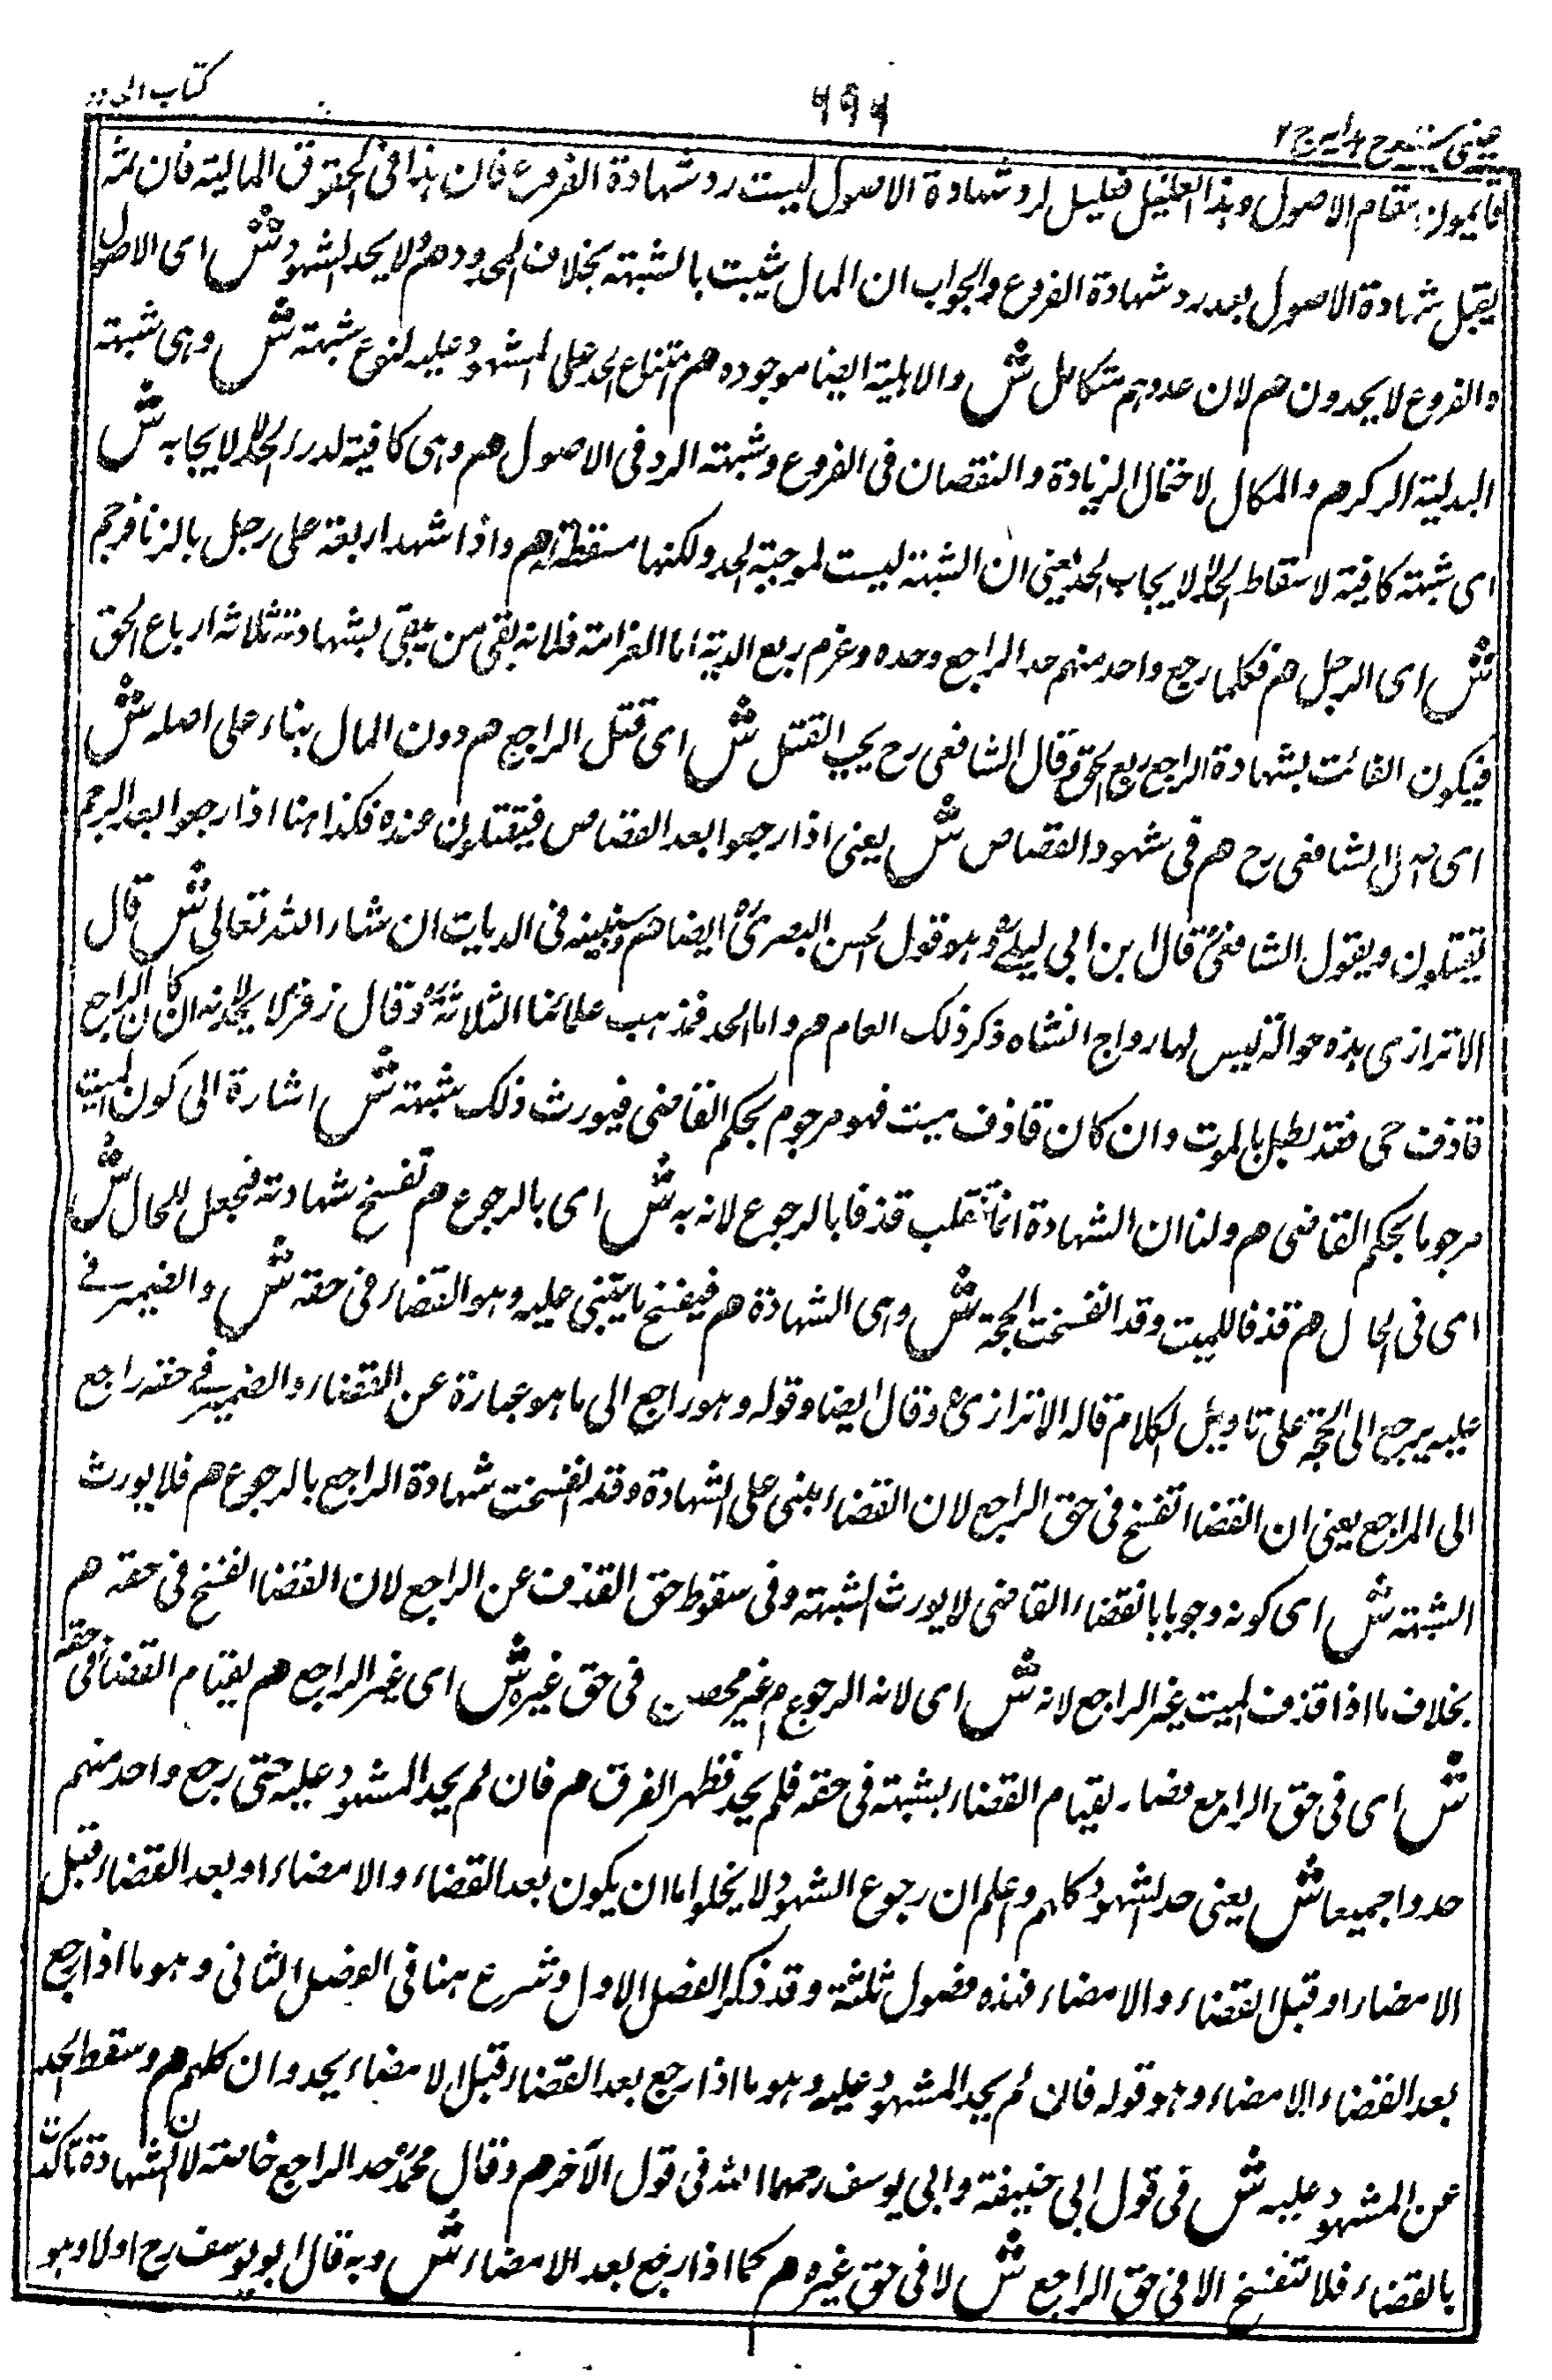 عینی شرح ہدایہ ج ۲
۶۹۶
کتاب الحدود
قائمون مقام الاصول وہذا التعلیل لرد شہادة الاصول لیست رد شہادة الفروع فان ہذا فی الحقوق المالیة فان ثمہ
یقبل شہادة الاصول بعد رد شہادة الفروع والجواب ان المال یثبت بالشبہة بخلاف الحدود ھم ولا یحد الشہود ش ای الاصول
والفروع لا یحدون ھم لان عددہم متکامل ش والاہلیة ایضا موجودہ ھم وامتناع الحد علی المشہود علیہ لنوع شبہة ش وہی شبہة
البدلیة ھم والکمال لاحتمال الزیادة والنقصان فی الفروع وشبہة الرد فی الاصول ھم وہی کافیة لدرء الحد لا لایجابہ ش
ای شبہة کافیة لاسقاط الحد لا لایجاب الحد یعنی ان الشبہة لیست لموجبة الحد ولکنہا مسقطة لہ ھم واذا شہد اربعة علی رجل بالزنا فرجم
ش ای الرجل ھم فکلما رجع واحد منہم حد الراجع وحدہ وغرم ربع الدیة اما الغرامة فلانہ بقی من یبقی بشہادتہ ثلاثة ارباع الحق
فیکون الفائت بشہادة الراجع ربع الحق ھم وقال الشافعی رح یجب القتل ش ای قتل الراجع ھم دون المال بناء علی اصلہ ش
ای الشافعی رح ھم فی شہود القصاص ش یعنی اذا رجعوا بعد القصاص فیقتلون عندہ فکذا ہنا اذا رجعوا بعد الرجم
یقتلون وبقول الشافعی قال ابن ابی لیلی وہو قول الحسن البصری ایضا ھم وسنبینہ فی الدیات ان شاء اللہ تعالی ش قال
الاترازی ہذہ حوالة لیس لہا رواج ذکر ذلک العام ھم واما الحد فمذہب علمائنا الثلاثة وقال زفر لا یحد لانہ ان کان الراجع
قاذف حی فقد بطل بالموت وان کان قاذف میت فہو مرجوم بحکم القاضی فیورث ذلک شبہة ش اشارة الی کون المیت
مرجوما بحکم القاضی ھم ولنا ان الشہادة انما تنقلب قذفا بالرجوع لانہ بہ ش ای بالرجوع ھم تفسخ شہادتہ فجعل للحال ش
ای فی الحال ھم قذفا للمیت وقد انفسخت الحجة ش وہی الشہادة ھم فینفسخ ما یبتنی علیہ وہو القضاء فی حقہ ش والضمیر فی
علیہ یرجع الی الحجة علی تاویل الکلام قالہ الاترازی وقال ایضا وقولہ وہو راجع الی ما ہو عبارة عن القضاء والضمیر فی حقہ راجع
الی الراجع یعنی ان القضا انفسخ فی حق الراجع لان القضاء یبنی علی الشہادة وقد انفسخت شہادة الراجع بالرجوع ھم فلا یورث
الشبہة ش ای کونہ وجوبا بالقضاء القاضی لا یورث الشبہة وفی سقوط حق القذف عن الراجع لان القضا انفسخ فی حقہ ھم
بخلاف ما اذا قذف المیت غیر الراجع لانہ ش ای لانہ الرجوع م غیر محصن فی حق غیرہ ش ای غیر الراجع ھم لقیام القضاء فی حقہ
ش ای فی حق الراجع فصار لقیام القضاء لشبہة فی حقہ فلم یحد فظہر الفرق ھم فان لم یحد المشہود علیہ حتی رجع واحد منہم
حدوا جمیعا ش یعنی حد الشہود کلہم واعلم ان رجوع الشہود لا یخلوا اما ان یکون بعد القضاء والامضاء او بعد القضاء قبل
الامضاء او قبل القضاء والامضاء فہذہ فصول ثلثة وقد ذکر الفصل الاول وشرع ہنا فی الفصل الثانی وہو ما اذا رجع
بعد القضاء الامضاء وہو قولہ فان لم یحد المشہود علیہ وہو ما اذا رجع بعد القضاء قبل الامضاء یحدون کلہم ھم وسقط الحد
عن المشہود علیہ ش فی قول ابی حنیفة وابی یوسف رحمہما اللہ فی قول الآخر ھم وقال محمد حد الراجع خاصة لان الشہادة تاکدت
بالقضاء فلا تنفسخ الا فی حق الراجع ش لا فی حق غیرہ ھم کما اذا رجع بعد الامضاء ش وبہ قال ابو یوسف رح اولا وہو